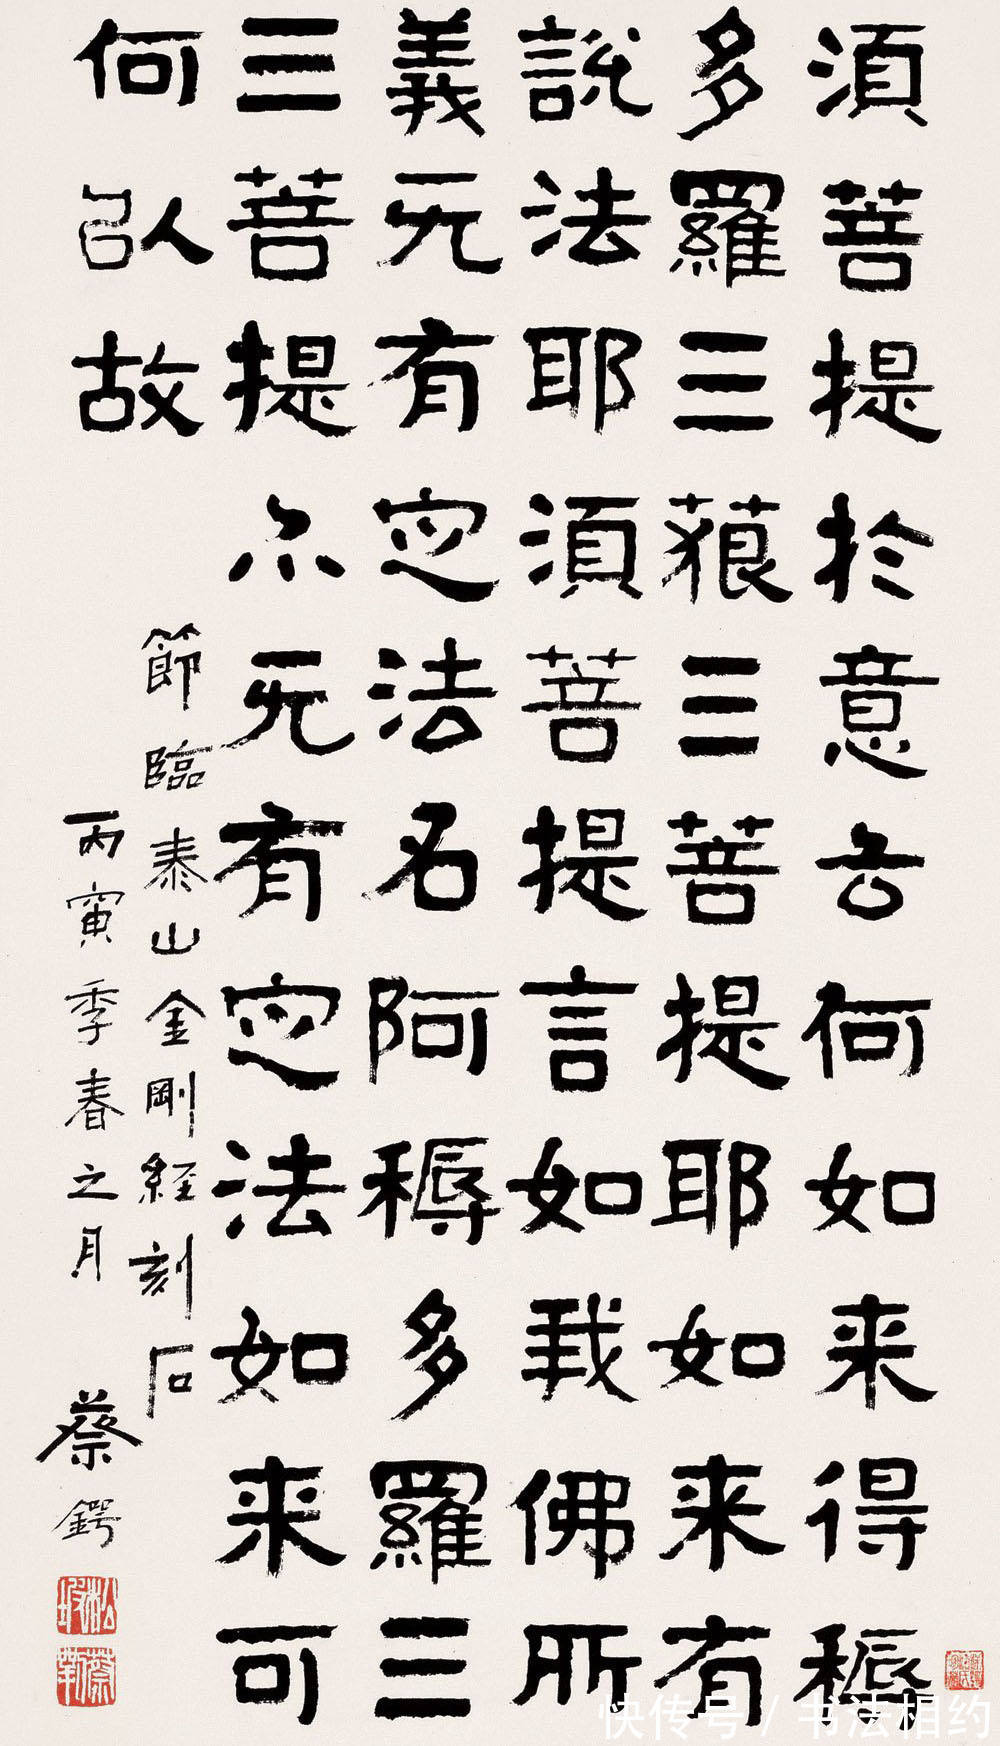 須菩提於意云何如来得耨
多羅三藐三菩提耶如来有
說法耶須菩提言如我佛所
義无有定法名阿耨多羅三
三菩提亦无有定法如来可
何以故
節臨泰山金剛經刻石
丙寅季春之月
蔡鍔
松坡
快传号 / 书法相约